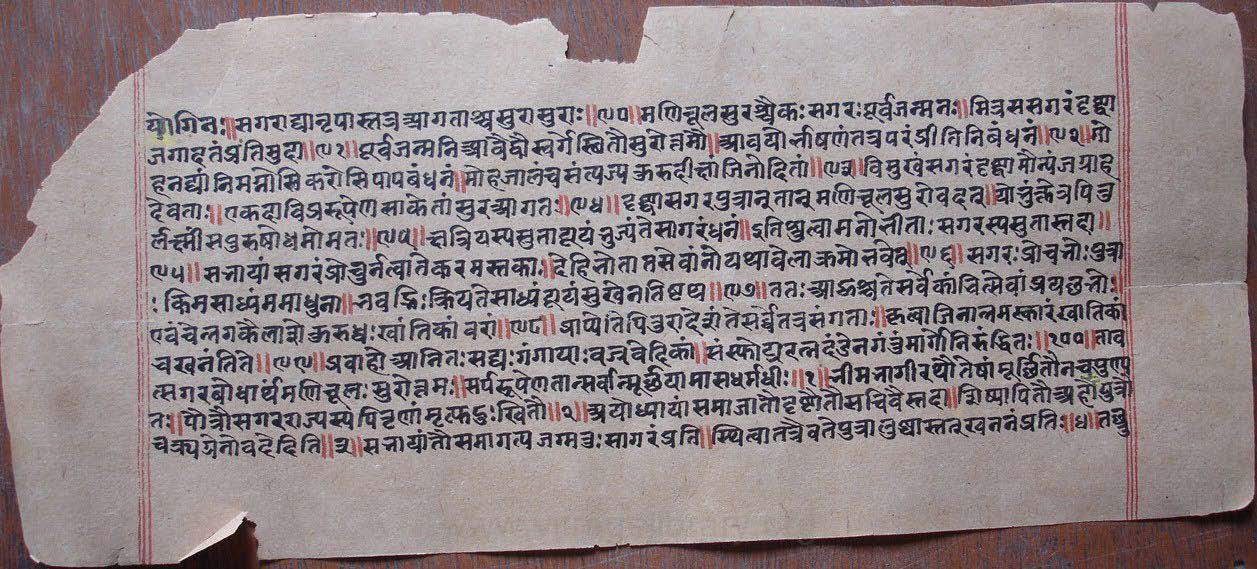 योगिनः॥सगराद्यानृपास्तत्रआगताश्चसुरासुराः॥९०॥मणिचूलसुरश्चैकःसगरःपूर्वजन्मनः॥मित्रससगरंदृष्ट्वा
जगादतंप्रतिमुदा॥९१॥पूर्वजन्मनिआवैद्वौस्वर्गेस्थितौसुरोत्तमौ॥आवयोर्भाषणंतत्रपरंप्रीतिनिबंधनं॥९२॥मो
हनद्यांनिमग्नोसिकरोसिपापबंधनं॥मोहजालंचसंत्यज्यकुरुदीक्षांजिनोदितां॥९३॥विमुखंसगरंदृष्ट्वामौन्यजग्राह
देवता॥एकदाविप्ररूपेणसाकेतांसुरआगतः॥९४॥दृष्ट्वासगरपुत्रान्तान्मणिचूलसुरोवदत्॥योभुंक्तेत्रपितु
र्लक्ष्मींसपुरुषोधमोमतः॥९५॥क्षत्रियस्यसुतायूयंभुज्यंतेसागरंधनं॥इतिश्रुत्वामनोभीताःसगरस्यसुतास्तदा॥
९५॥सभायांसगरंप्रोचुर्नत्वातेकरमस्तकाः॥देहिभोतातसेवांनोयथावेलाक्रमोभवेत्॥९६॥सगरःप्रोचभोःपुत्रा
ःकिमसाध्यंममाधुना॥भवद्भिःक्रियतेसाध्यंयूयंसुखेनतिष्टथ॥९७॥ततःआक्रुश्यतेसर्वेकांचित्सेवांप्रयच्छभोः॥
एवंचेत्तर्गकैलाशेकुरुध्वःखांतिकांवरां॥९८॥प्राप्येतिपितुरादेशंतेसर्वेतत्रसंगताः॥कृत्वाजिनालमस्कारंखातिकां
चखनंतिते॥९९॥प्रवाहोआनितःसद्यःगंगायाःवज्रवेदिकां॥संस्फोट्यरत्नदंडेनगंतुंमार्गोनिरुंद्धितः॥१००॥ताव
त्सगरबोधार्थंमणिचूलःसुरोत्तमः॥सर्परूपेणतान्सर्वान्मूर्छयामासधर्मधीः॥१॥भीमभागीरथौतेषांमूर्छितौनचपुण्य
तः॥पौत्रौसगरराज्यस्यपितृणांमृत्युदुःखितौ॥२॥अयोध्यायांसमायातौदृष्टौतौसचिवैस्तदा॥शिष्यापितौअहौपुत्रौ
चक्र्यग्रेनोवदेदिति॥३॥सभायांतौसमागत्यजग्मतुःसागरंप्रति॥स्थित्वातत्रैवतेपुत्रालुब्धास्तत्खननंप्रतिः॥४॥तच्छु